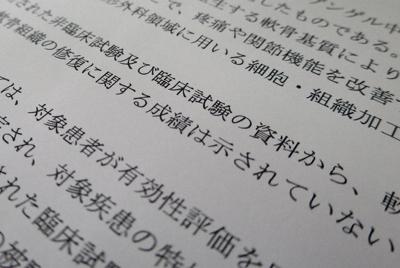 ンゲル中
したものである。
生する軟骨基質により
で、疼痛や関節機能を改善す
外科領域に用いる細胞・組織加工
された非臨床試験及び臨床試験の資料から、軟
骨組織の修復に関する成績は示されていない
ては、対象患者が有効性評価を
定され、対象疾患の特
された臨床試験
の被